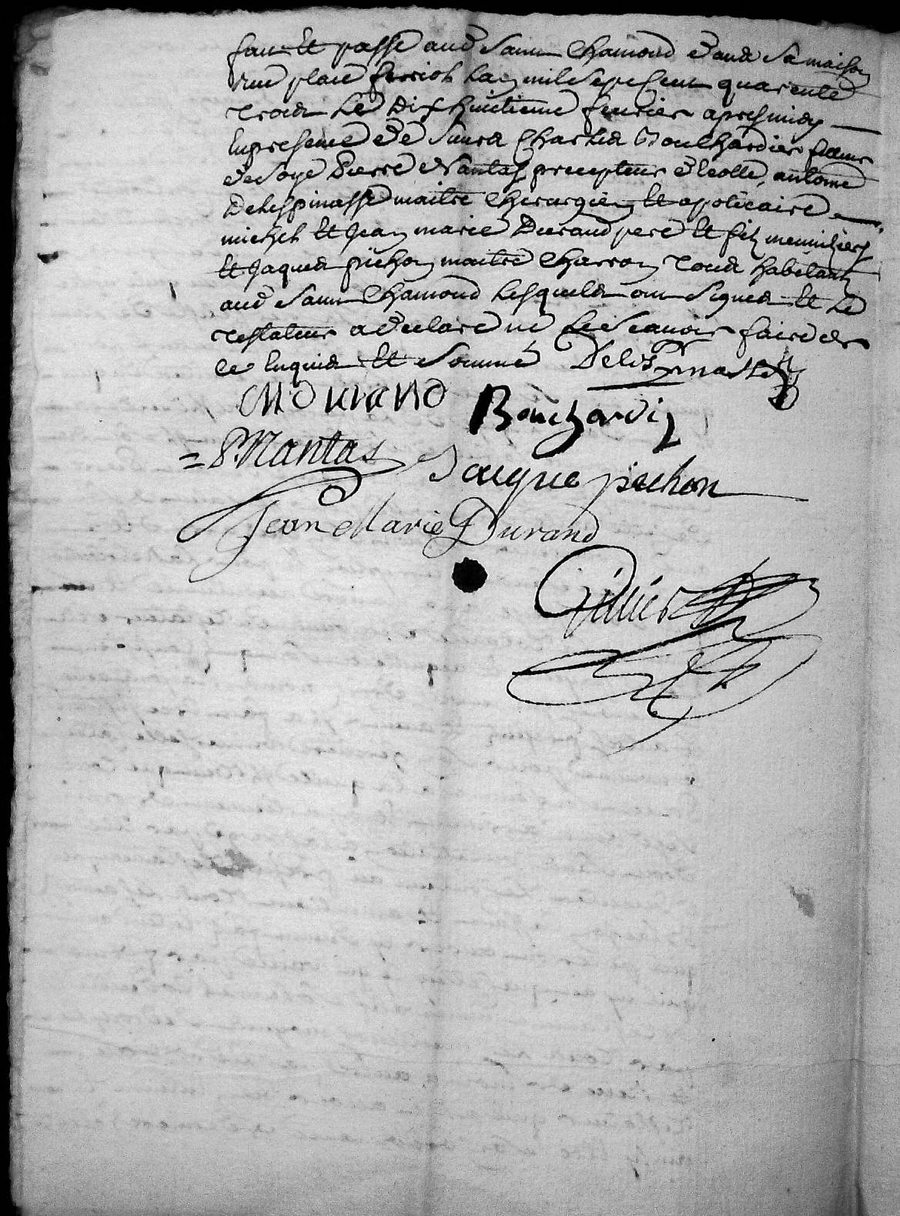 fait et passé aud Saint Chamond dans sa maison
rue place ferriol Lan mil sept Cent quarente
trois Le Dix huitieme fevrier apres midy
En presence de Sieurs Charles Bouchardier
de soye Pierre Nantas precepteur d'ecolle, antoine
Delespinasse maitre Chirurgien et apoticaire
michel et Jean marie Durand pere et fils menuisiers
et Jaques pichon maitre Charron tous habitans
aud Saint Chamond Lesquels ont signés et Le
testateur a declaré ne Le scavoir faire de
ce Enquis et sommé
MDurand Bouchardi
PNantas Jacque pichon
Jean Marie Durand